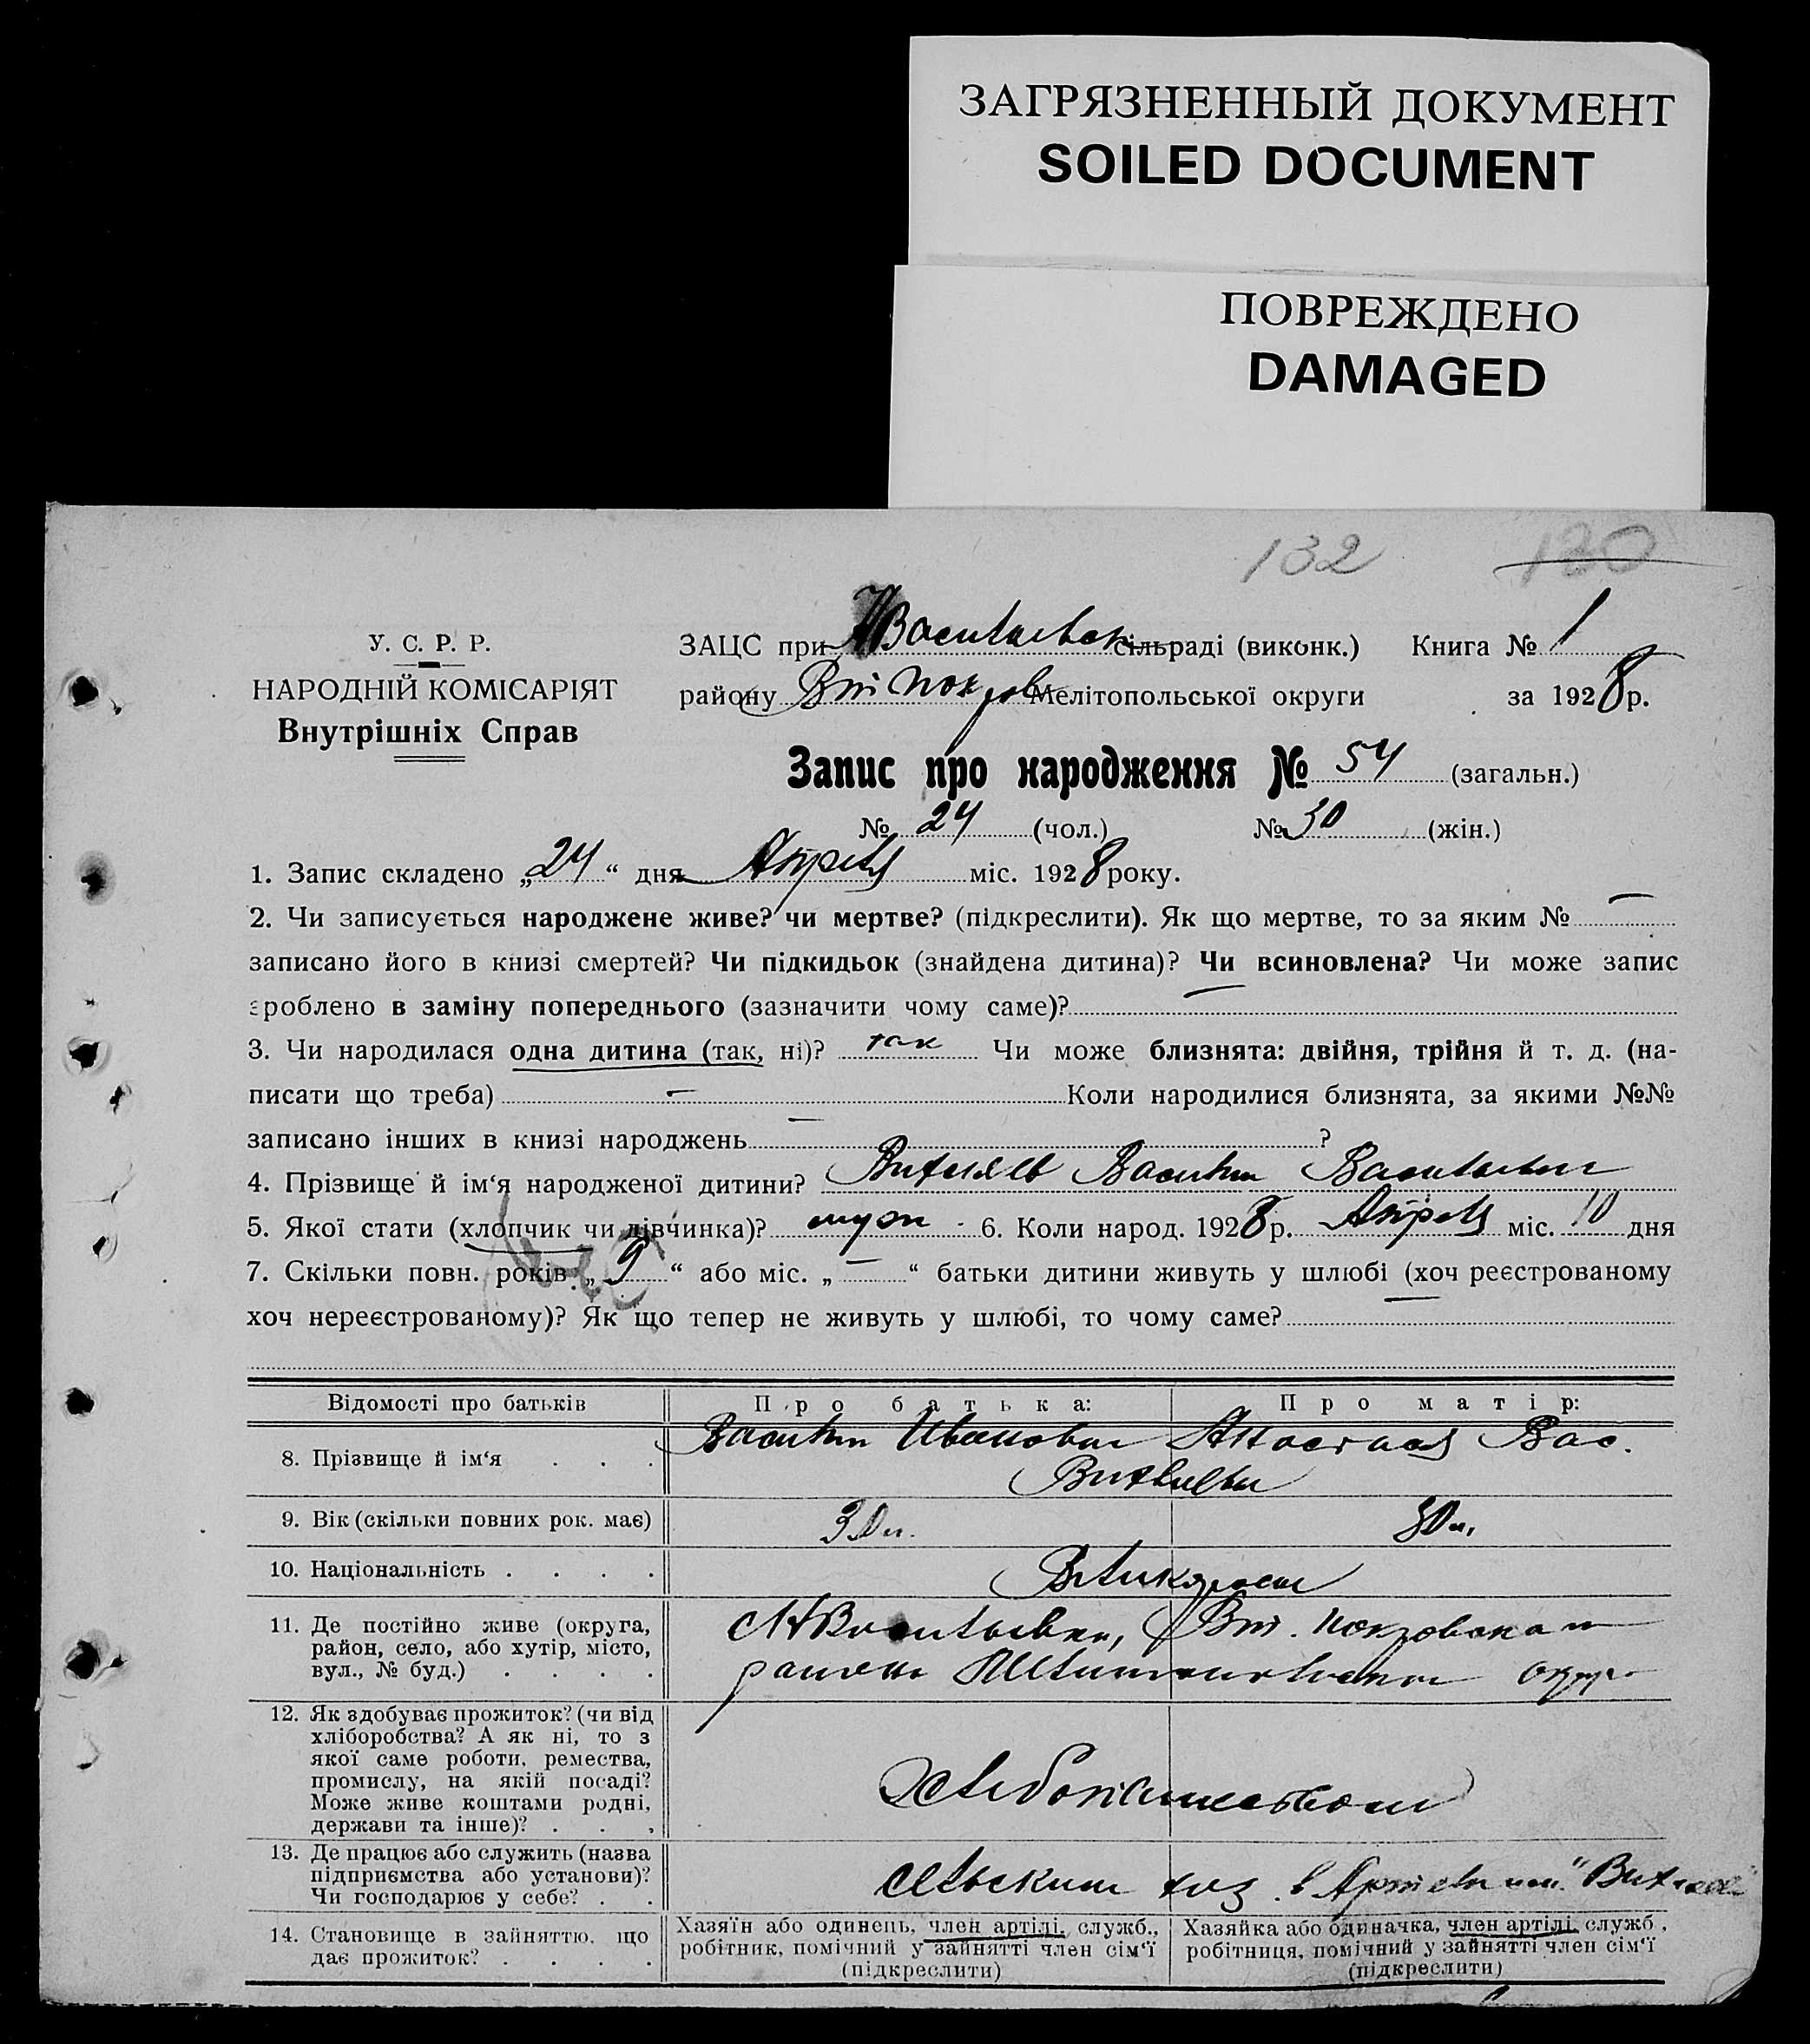 ЗАГРЯЗНЕННЫЙ ДОКУМЕНТ
SOILED DOCUMENT
ПОВРЕЖДЕНО
DAMAGED
132 120
У. С. Р. Р.
НАРОДНІЙ КОМІСАРІЯТ
Внутрішніх Справ
ЗАЦС при НВасильевск сільраді (виконк.) Книга № 1
району Мелітопольської округи за 1928 р.
Запис про народження № 54 (загальн.)
№ 24 (чол.) № 30 (жін.)
1. Запис складено „24“ дня Апреля міс. 1928 року.
2. Чи записується народжене живе? чи мертве? (підкреслити). Як що мертве, то за яким № —
записано його в книзі смертей? Чи підкидьок (знайдена дитина)? Чи всиновлена? Чи може запис
зроблено в заміну попереднього (зазначити чому саме)? —
3. Чи народилася одна дитина (так, ні)? так Чи може близнята: двійня, трійня й т. д. (на-
писати що треба) — Коли народилися близнята, за якими №№
записано інших в книзі народжень — ?
4. Прізвище й ім‘я народженої дитини? Василий Васильевич
5. Якої стати (хлопчик чи дівчинка)? муж 6. Коли народ. 1928 р. Апреля міс. 10 дня
7. Скільки повн. років „9“ або міс. „—“ батьки дитини живуть у шлюбі (хоч реєстрованому
хоч нереєстрованому)? Як що тепер не живуть у шлюбі, то чому саме? —
Відомості про батьків Про батька: Про матір:
8. Прізвище й ім‘я . . . Василий Иванович Анастасия Вас.
9. Вік (скільки повних рок. має) 30 л. 30 л.
10. Національність . . . . Великоросы
11. Де постійно живе (округа,
район, село, або хутір, місто,
вул., № буд.) . . . .
НВасильевка, Покровского
района Мелитопольского округа
12. Як здобуває прожиток? (чи від
хліборобства? А як ні, то з
якої саме роботи, ремества,
промислу, на якій посаді?
Може живе коштами родні,
держави та інше)? . . .
Хлебопашеством
13. Де працює або служить (назва
підприємства або установи)?
Чи господарює у себе? . .
сельским хоз. в Артели
14. Становище в зайняттю, що
дає прожиток? . . . .
Хазяїн або одинець, член артілі, служб.,
робітник, помічний у зайнятті член сім‘ї
(підкреслити)
Хазяйка або одиначка, член артілі, служб.,
робітниця, помічний у зайнятті член сім‘ї
(підкреслити)